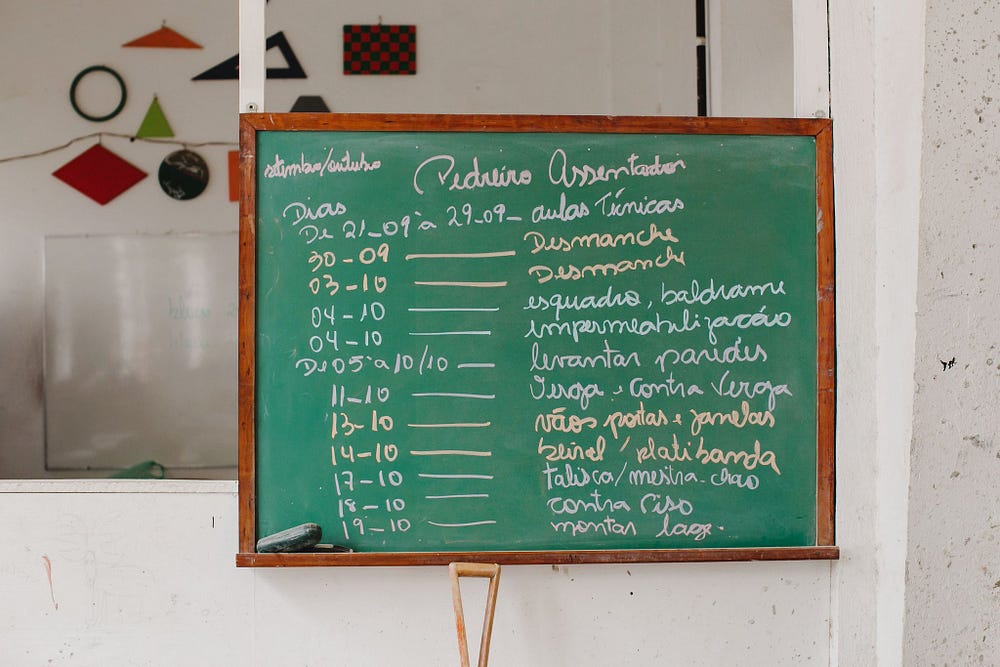 setembro/outubro
Pedreiro Assentador
Dias
De 21-09 à 29-09- aulas Técnicas
30-09 Desmanche
03-10 Desmanche
04-10 esquadro, baldrame
04-10 impermeabilização
De 05 à 10/10 levantar paredes
11-10 Verga e Contra Verga
13-10 vãos portas e janelas
14-10 beiral / platibanda
17-10 talisca/mestra-chão
18-10 contra Piso
19-10 montar lage.